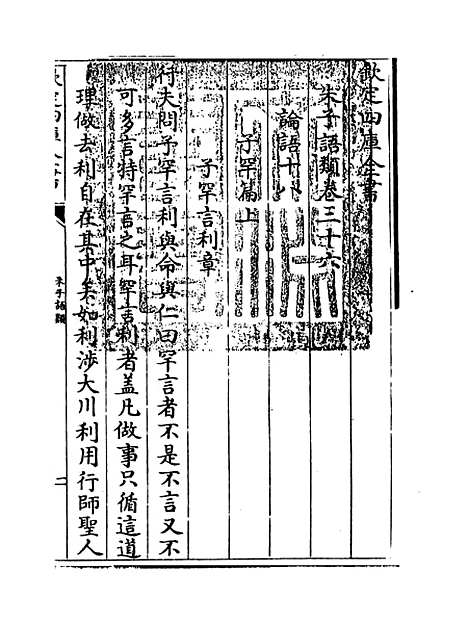 欽定四庫全書
朱子語類卷三十六
論語十八
子罕篇上
子罕言利章
行夫問子罕言利與命與仁曰罕言者不是不言又不
可多言特罕言之耳罕言利者蓋凡做事只循這道
理做去利自在其中矣如利涉大川利用行師聖人
欽定四庫全書
朱子語類
二